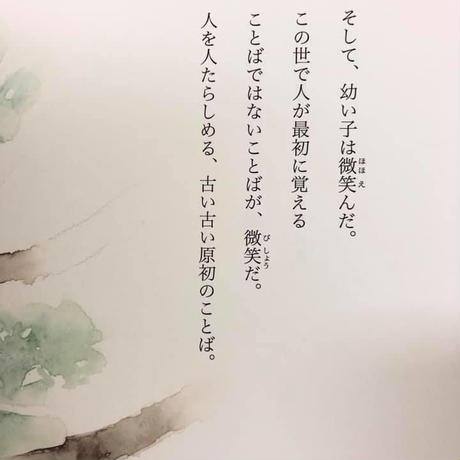 そして、幼い子は微笑んだ。
この世で人が最初に覚える
ことばではないことばが、微笑だ。
人を人たらしめる、古い古い原初のことば。